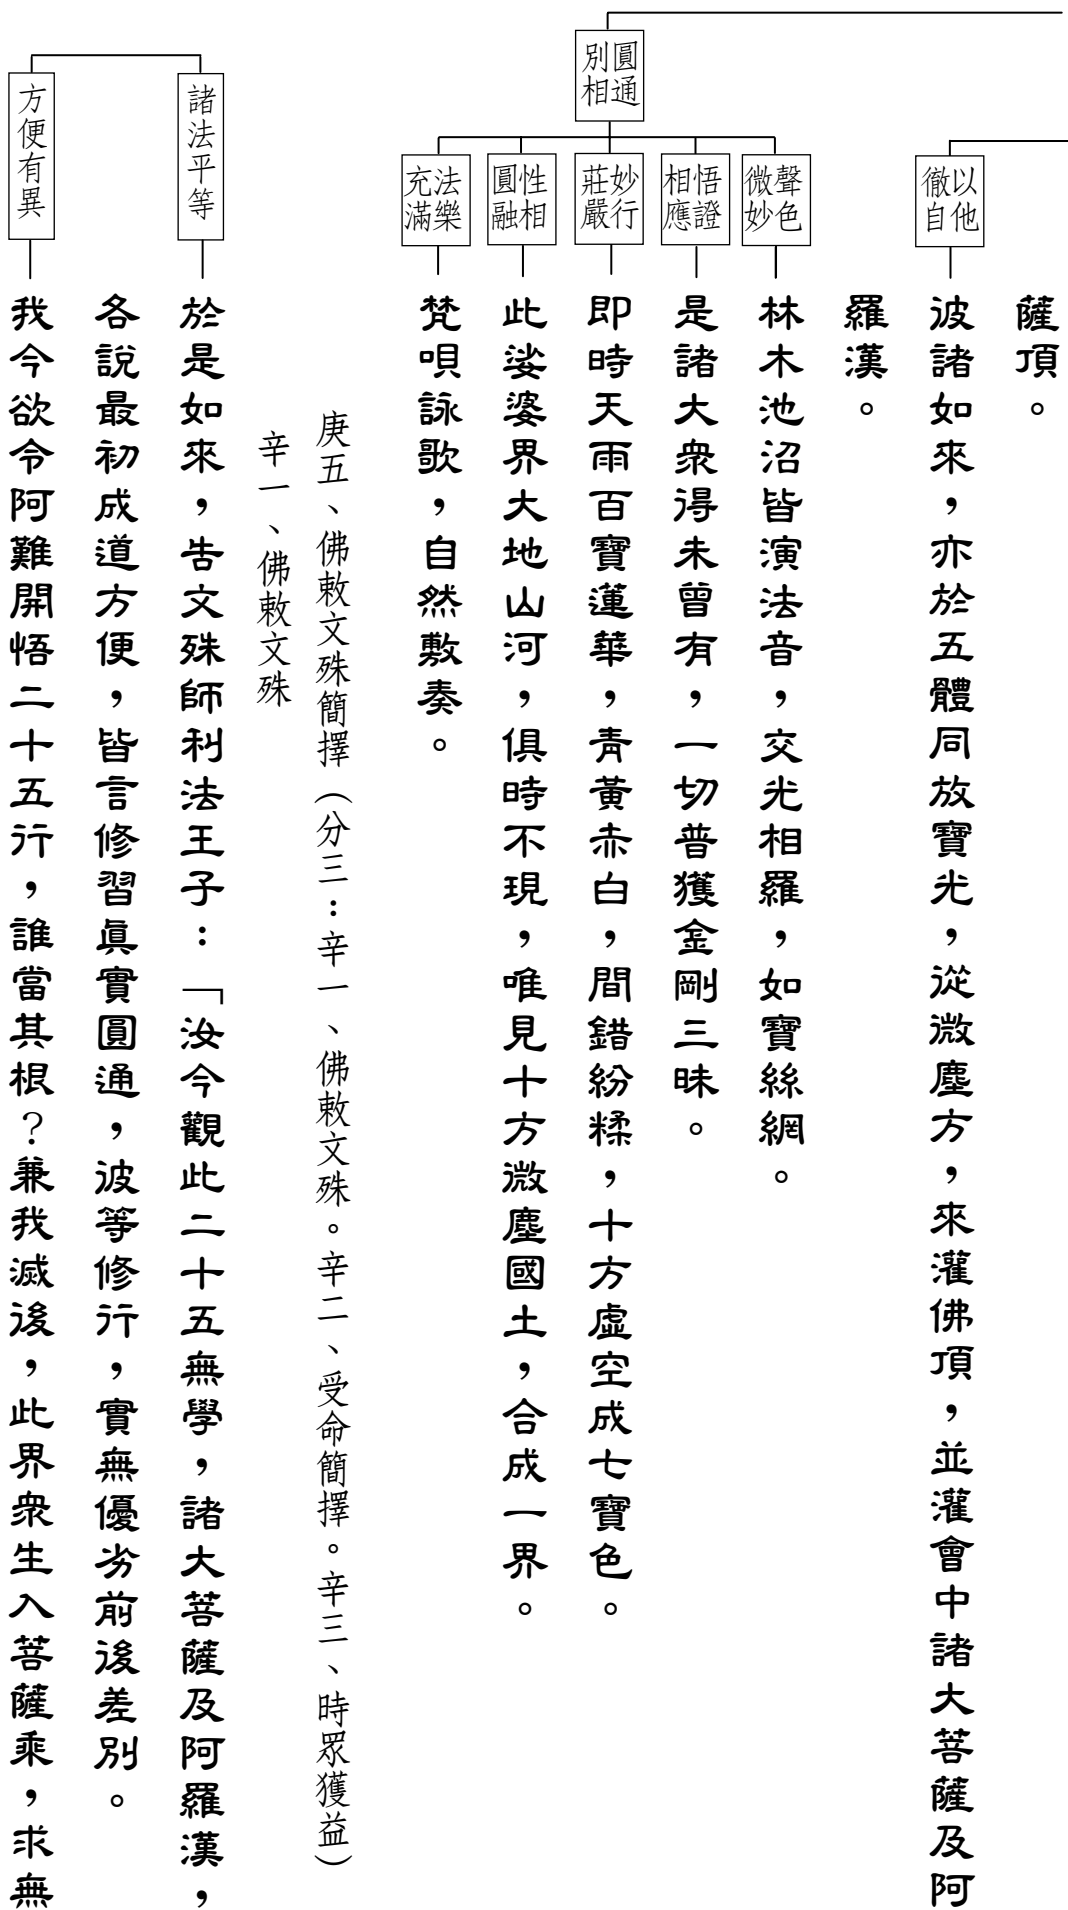 薩頂。
以他
徹自
彼諸如來，亦於五體同放寶光，從微塵方，來灌佛頂，並灌會中諸大菩薩及阿
羅漢。
圓通
別相
聲色
微妙
林木池沼皆演法音，交光相羅，如寶絲網。
悟證
相應
是諸大眾得未曾有，一切普獲金剛三昧。
妙行
莊嚴
即時天雨百寶蓮華，青黃赤白，間錯紛糅，十方虛空成七寶色。
性相
圓融
此娑婆界大地山河，俱時不現，唯見十方微塵國土，合成一界。
法樂
充滿
梵唄詠歌，自然敷奏。
庚五、佛敕文殊簡擇（分三：辛一、佛敕文殊。辛二、受命簡擇。辛三、時眾獲益）
辛一、佛敕文殊
諸法平等
於是如來，告文殊師利法王子：「汝今觀此二十五無學，諸大菩薩及阿羅漢，
各說最初成道方便，皆言修習真實圓通，彼等修行，實無優劣前後差別。
方便有異
我今欲令阿難開悟二十五行，誰當其根？兼我滅後，此界眾生入菩薩乘，求無